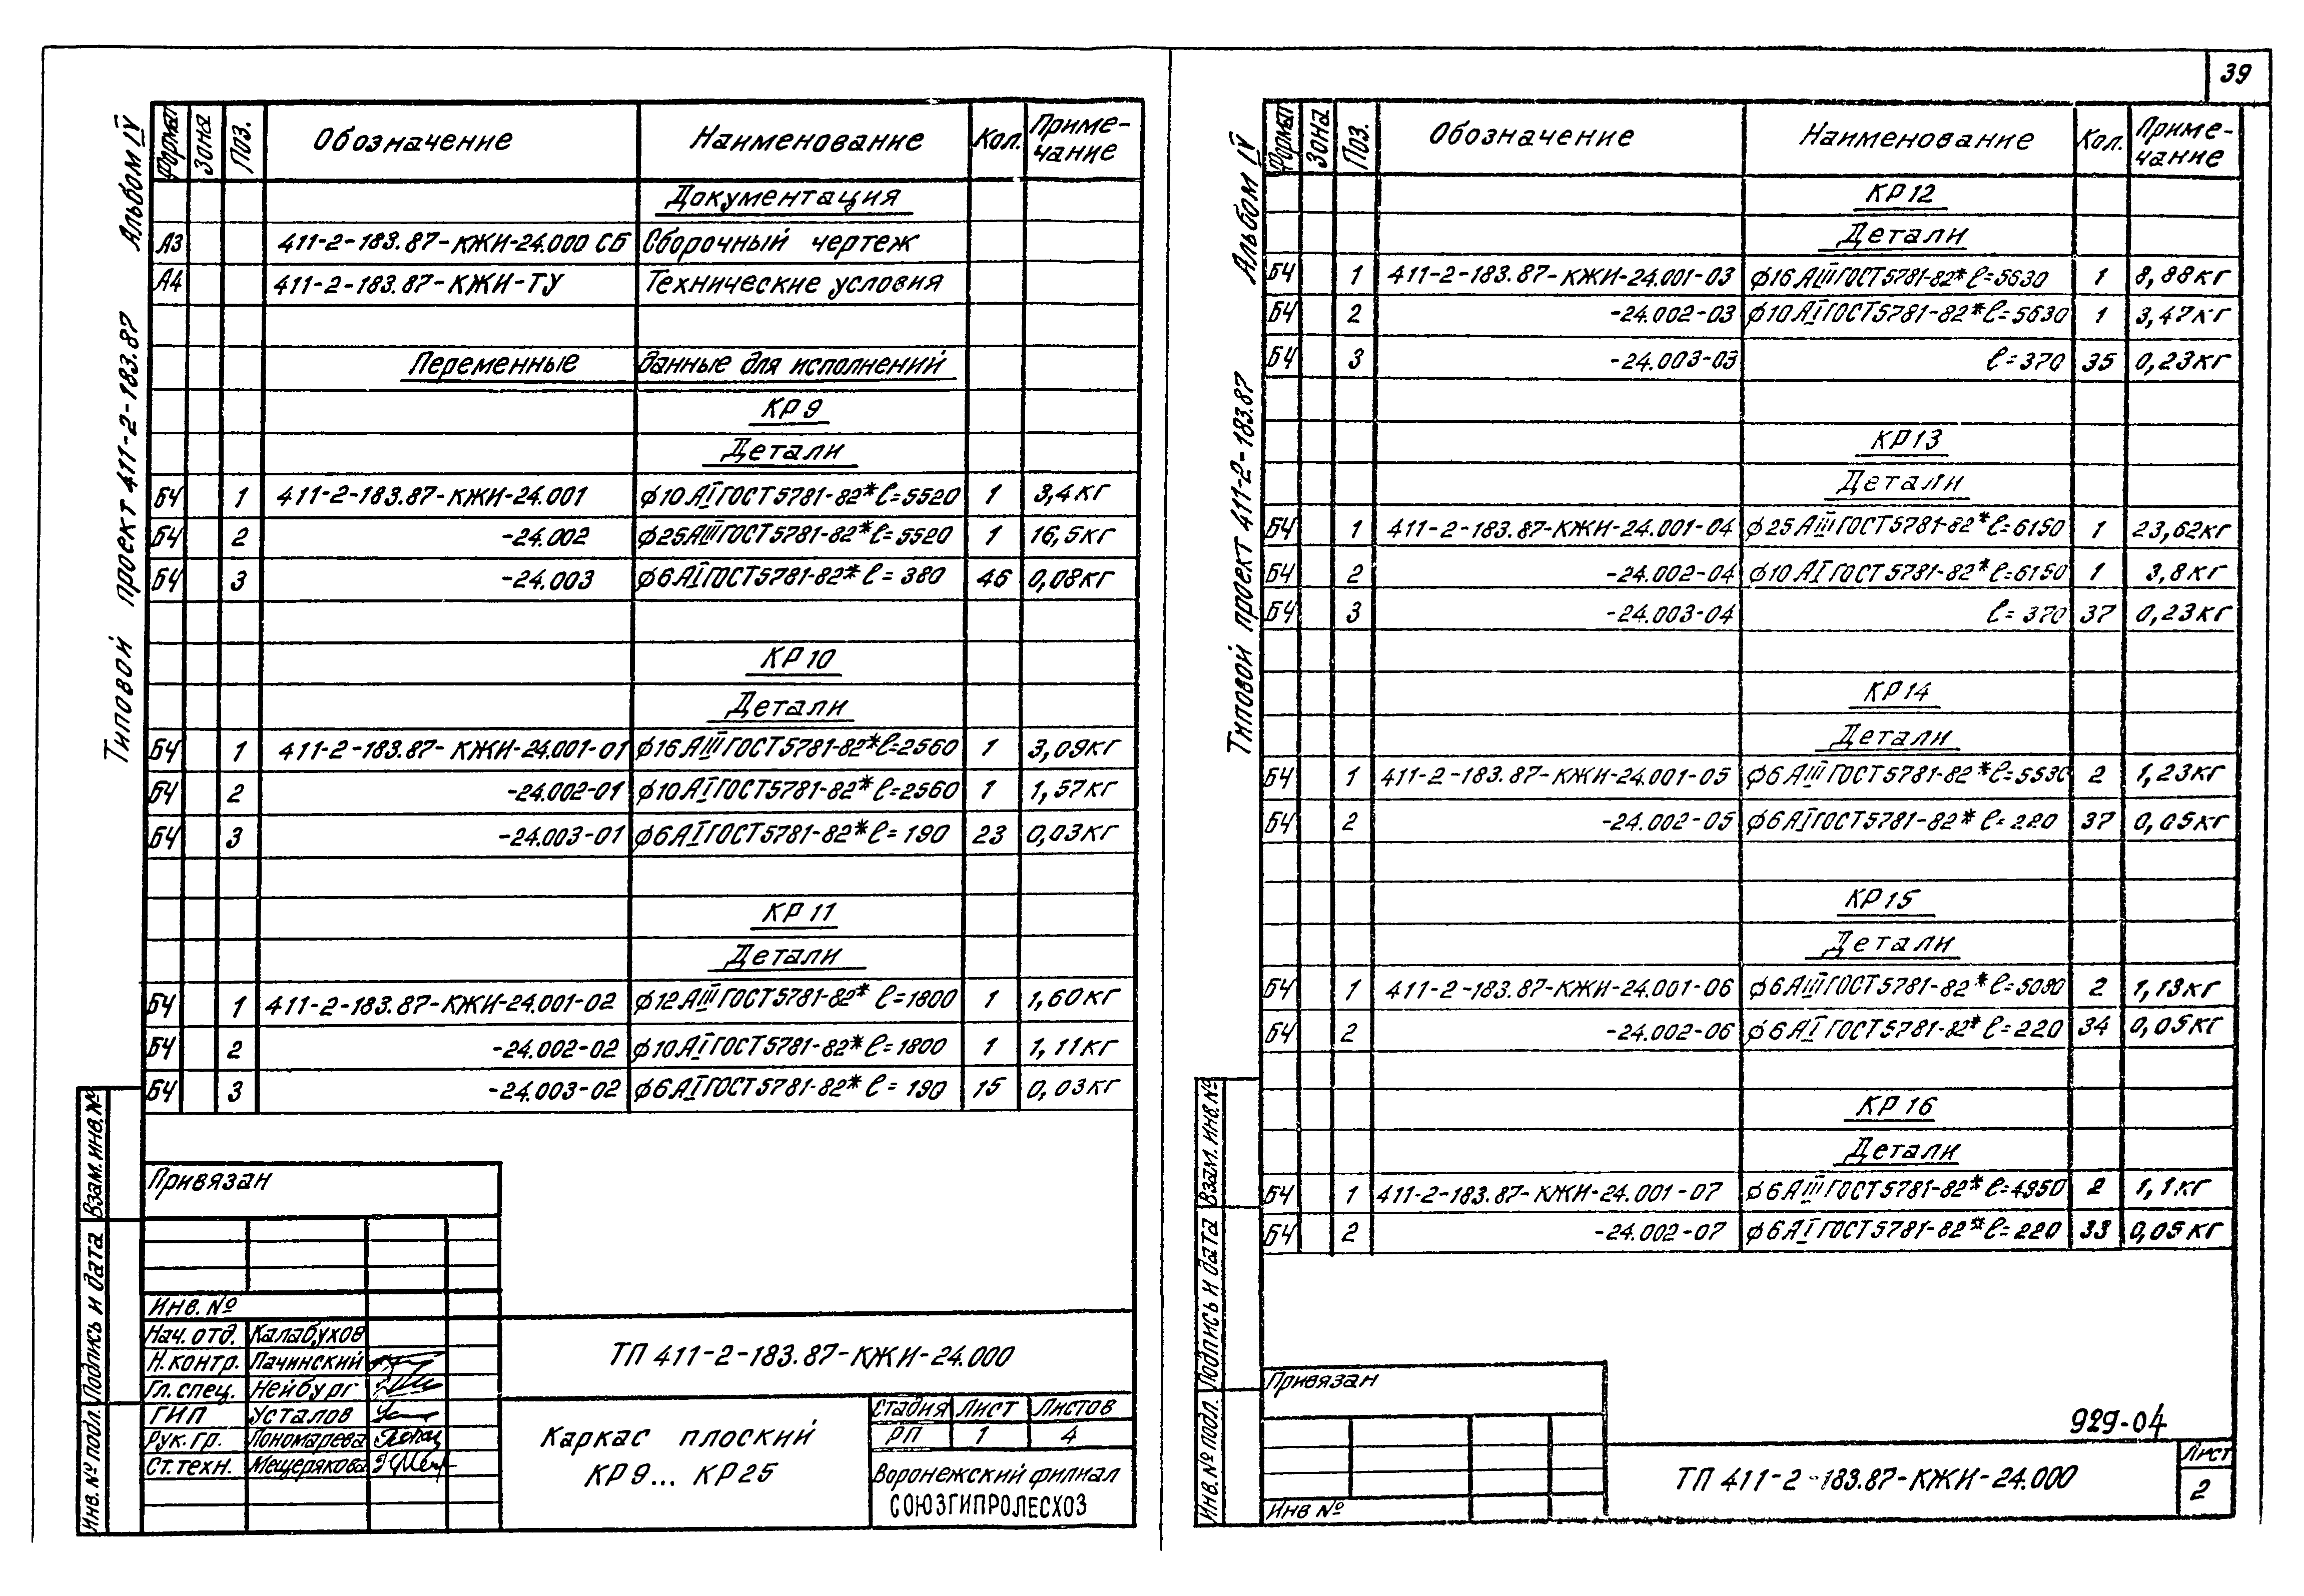 39
Альбом IV
Типовой проект 411-2-183.87
Формат Зона Поз. Обозначение Наименование Кол. Примечание
Документация
А3 411-2-183.87-КЖИ-24.000 СБ Сборочный чертеж
А4 411-2-183.87-КЖИ-ТУ Технические условия
Переменные данные для исполнений
КР 9
Детали
БЧ 1 411-2-183.87-КЖИ-24.001 ϕ10 АI ГОСТ 5781-82* ℓ=5520 1 3,4кг
БЧ 2 -24.002 ϕ25АIII ГОСТ 5781-82* ℓ=5520 1 16,5кг
БЧ 3 -24.003 ϕ6 АI ГОСТ 5781-82* ℓ= 380 46 0,08кг
КР 10
Детали
БЧ 1 411-2-183.87-КЖИ-24.001-01 ϕ16 АIII ГОСТ 5781-82* ℓ=2560 1 3,09кг
БЧ 2 -24.002-01 ϕ10 АI ГОСТ 5781-82* ℓ=2560 1 1,57кг
БЧ 3 -24.003-01 ϕ6 АI ГОСТ 5781-82* ℓ= 190 23 0,03кг
КР 11
Детали
БЧ 1 411-2-183.87-КЖИ-24.001-02 ϕ12 АIII ГОСТ 5781-82* ℓ=1800 1 1,60кг
БЧ 2 -24.002-02 ϕ10 АI ГОСТ 5781-82* ℓ=1800 1 1,11кг
БЧ 3 -24.003-02 ϕ6 АI ГОСТ 5781-82* ℓ= 190 15 0,03кг
Взам. инв. №
Подпись и дата
Инв. № подл.
Привязан
Инв. №
Нач. отд. Калабухов
Н. контр. Пачинский
Гл. спец. Нейбург
ГИП Усталов
Рук. гр. Пономарева
Ст. техн. Мещерякова
ТП 411-2-183.87-КЖИ-24.000
Каркас плоский
КР 9... КР25
Стадия Лист Листов
РП 1 4
Воронежский филиал
СОЮЗГИПРОЛЕСХОЗ
Альбом IV
Типовой проект 411-2-183.87
Формат Зона Поз. Обозначение Наименование Кол. Примечание
КР 12
Детали
БЧ 1 411-2-183.87-КЖИ-24.001-03 ϕ16 АIII ГОСТ 5781-82* ℓ=5630 1 8,88кг
БЧ 2 -24.002-03 ϕ10 АI ГОСТ 5781-82* ℓ=5630 1 3,47кг
БЧ 3 -24.003-03 ℓ=370 35 0,23кг
КР 13
Детали
БЧ 1 411-2-183.87-КЖИ-24.001-04 ϕ25 АIII ГОСТ 5781-82* ℓ=6150 1 23,62кг
БЧ 2 -24.002-04 ϕ10 АI ГОСТ 5781-82* ℓ=6150 1 3,8кг
БЧ 3 -24.003-04 ℓ= 370 37 0,23кг
КР 14
Детали
БЧ 1 411-2-183.87-КЖИ-24.001-05 ϕ6 АIII ГОСТ 5781-82* ℓ=5530 2 1,23кг
БЧ 2 -24.002-05 ϕ6 АI ГОСТ 5781-82* ℓ=220 37 0,05кг
КР 15
Детали
БЧ 1 411-2-183.87-КЖИ-24.001-06 ϕ6 АIII ГОСТ 5781-82* ℓ=5080 2 1,13кг
БЧ 2 -24.002-06 ϕ6 АI ГОСТ 5781-82* ℓ=220 34 0,05кг
КР 16
Детали
БЧ 1 411-2-183.87-КЖИ-24.001-07 ϕ6 АIII ГОСТ 5781-82* ℓ=4950 2 1,1кг
БЧ 2 -24.002-07 ϕ6 АI ГОСТ 5781-82* ℓ=220 33 0,05кг
Взам. инв. №
Подпись и дата
Инв. № подл.
Привязан
Инв №
929-04
ТП 411-2-183.87-КЖИ-24.000
Лист
2